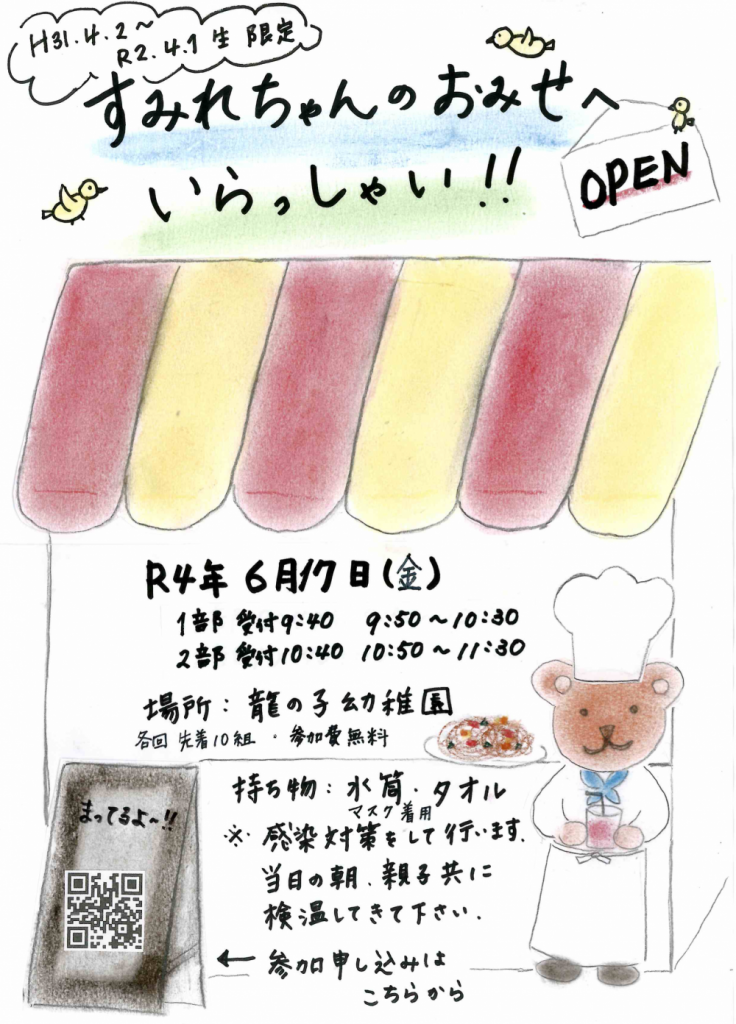 H31.4.2～
R2.4.1生 限定
すみれちゃんのおみせへ
いらっしゃい!!
OPEN
R4年 6月17日(金)
1部 受付9:40 9:50～10:30
2部 受付10:40 10:50～11:30
場所：龍の子幼稚園
各回 先着10組 ・参加費無料
まってるよ～!!
持ち物：水筒・タオル
マスク着用
※ 感染対策をして行います.
当日の朝、親子共に
検温してきて下さい.
← 参加申し込みは
こちらから